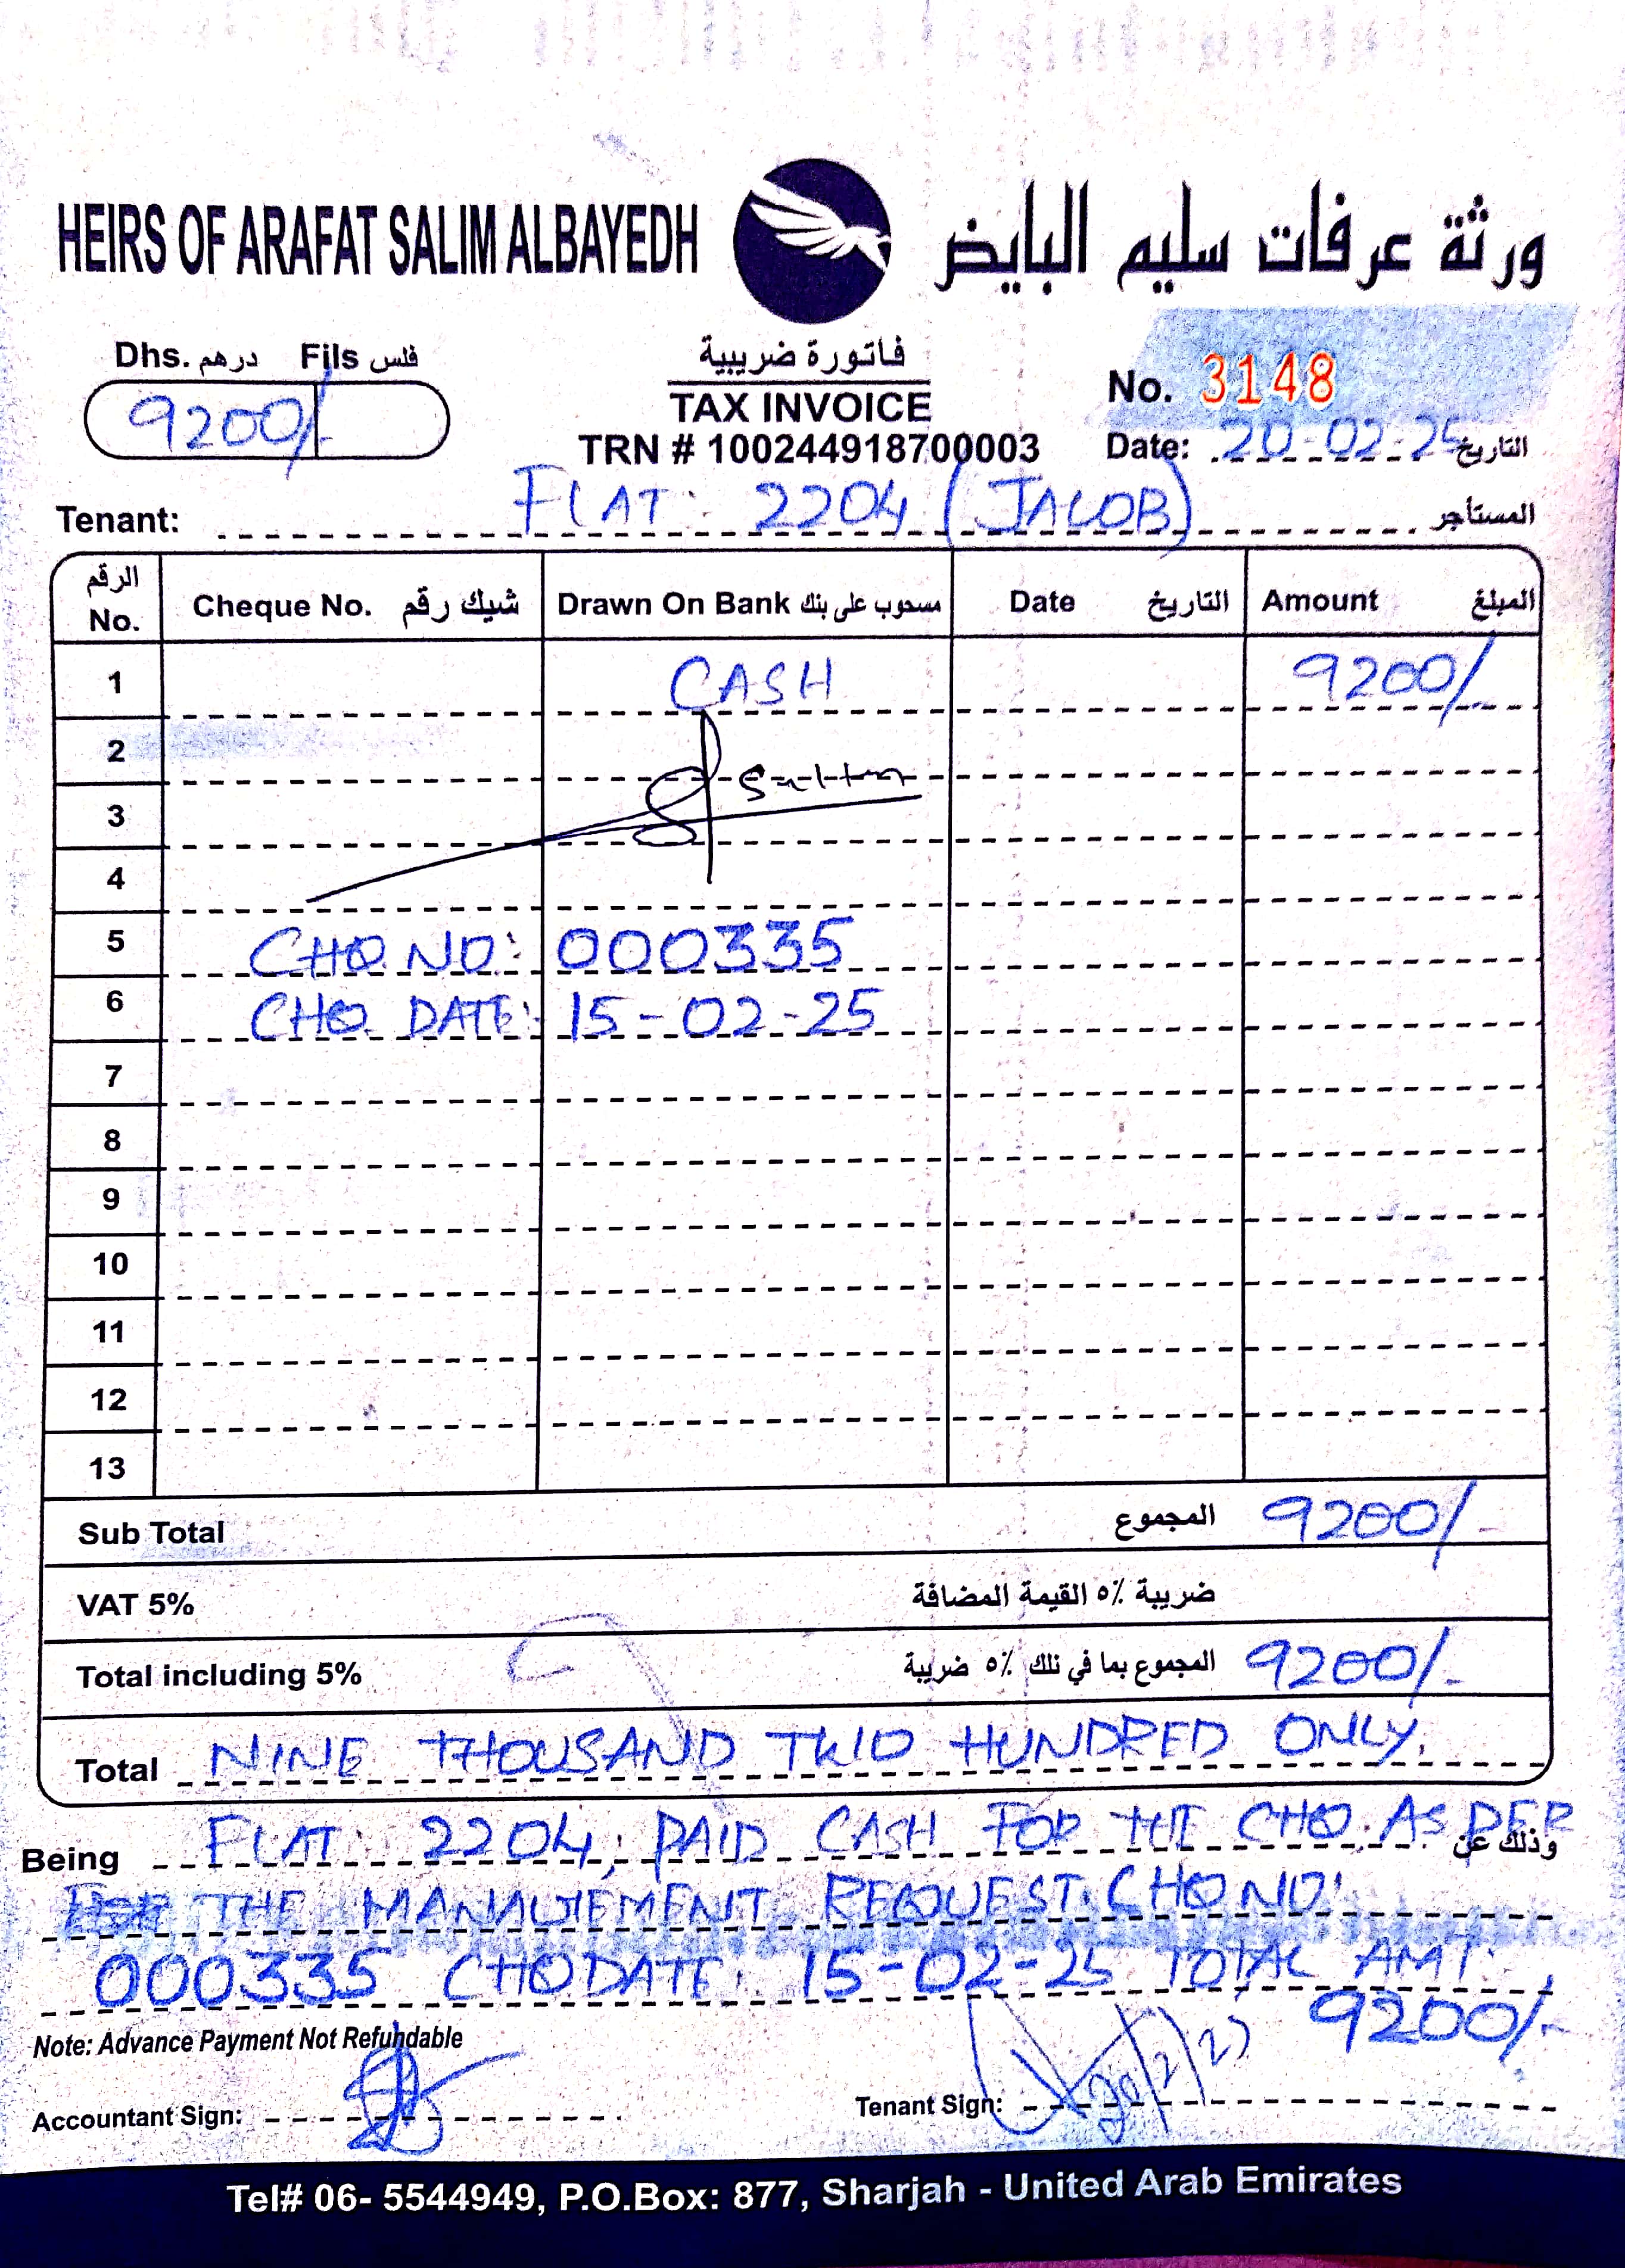 HEIRS OF ARAFAT SALIM ALBAYEDH ورثة عرفات سليم البايض
Dhs. درهم Fils فلس
9200/-
فاتورة ضريبية
TAX INVOICE
TRN # 100244918700003
No. 3148
Date: 20-02-25 التاريخ
Tenant: FLAT: 2204 (JACOB) المستأجر
الرقم No. Cheque No. شيك رقم Drawn On Bank مسحوب على بنك Date التاريخ Amount المبلغ
1 CASH 9200/-
2
3
4
5 CHQ NO: 000335
6 CHQ DATE: 15-02-25
7
8
9
10
11
12
13
Sub Total المجموع 9200/-
VAT 5% ضريبة ٥٪ القيمة المضافة
Total including 5% المجموع بما في ذلك ٥٪ ضريبة 9200/-
Total NINE THOUSAND TWO HUNDRED ONLY.
Being FLAT: 2204, PAID CASH FOR THE CHQ. AS PER وذلك عن
THE MANAGEMENT REQUEST. CHQ NO:
000335 CHQ DATE: 15-02-25 TOTAL AMT:
9200/-
Note: Advance Payment Not Refundable
Accountant Sign:
Tenant Sign: 20/2/25
Tel# 06- 5544949, P.O.Box: 877, Sharjah - United Arab Emirates